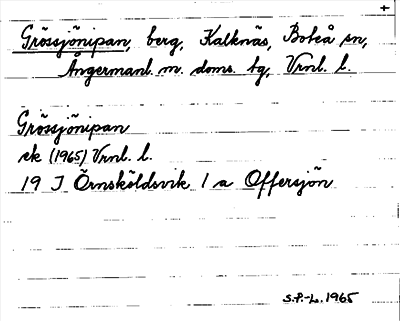 +
Grössjönipan, berg, Kalknäs, Boteå sn,
Ångermanl. m. doms. tg, Vrnl. l.
Grössjönipan
ek (1965) Vrnl. l.
19 J Örnsköldsvik 1 a Offersjön
S.P.-L. 1965